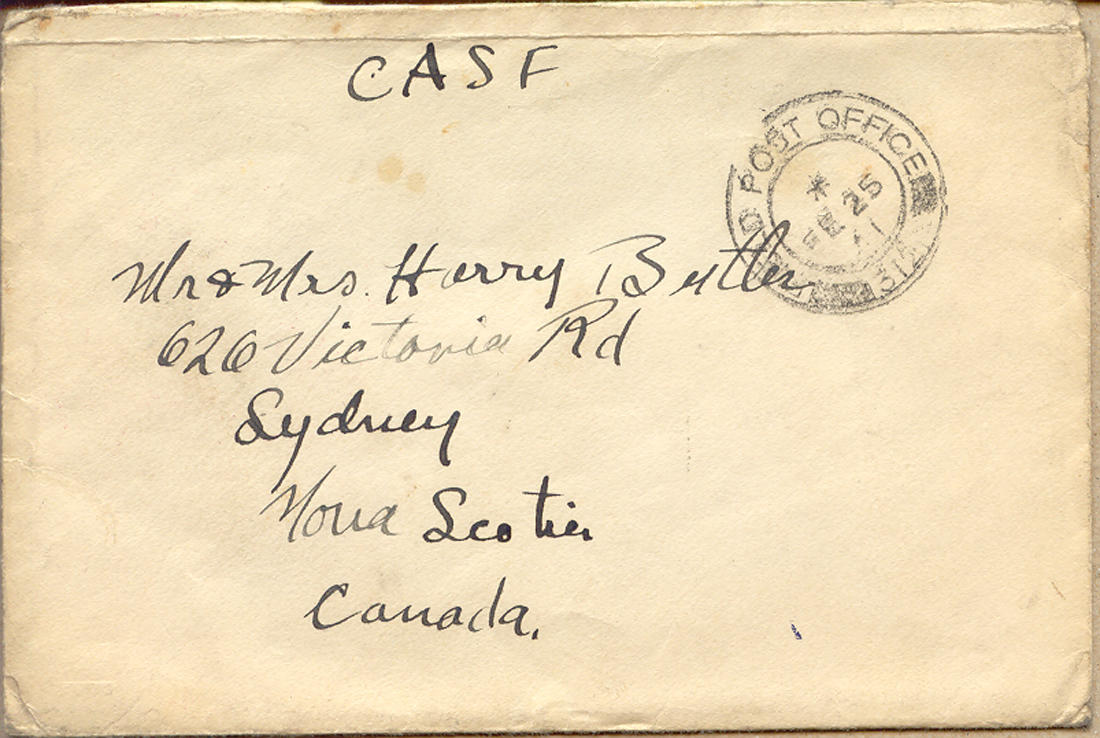 CASF
POST OFFICE
* FE 25 41
Mr & Mrs. Harry Butler
626 Victoria Rd
Sydney
Nova Scotia
Canada.